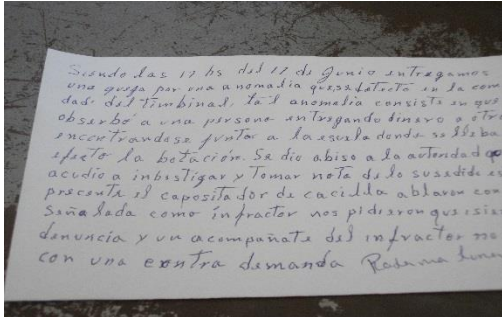 Siendo las 17 hs del 17 de Junio entregamos
una queja por una anomalia que se detectó en la com
dad del timbinal, tal anomalia consiste en que
obserbó a una persona entregando dinero a otra
encontrandose junto a la escuela donde se lleba
efecto la botación. Se dio abiso a la autoridad q
acudio a inbistigar y tomar nota de lo susedido es
presente el capasitador de cacilla ablaron con
Señalada como infractor nos pidieron que
denuncia y un acompañate del infractor no
con una contra demanda